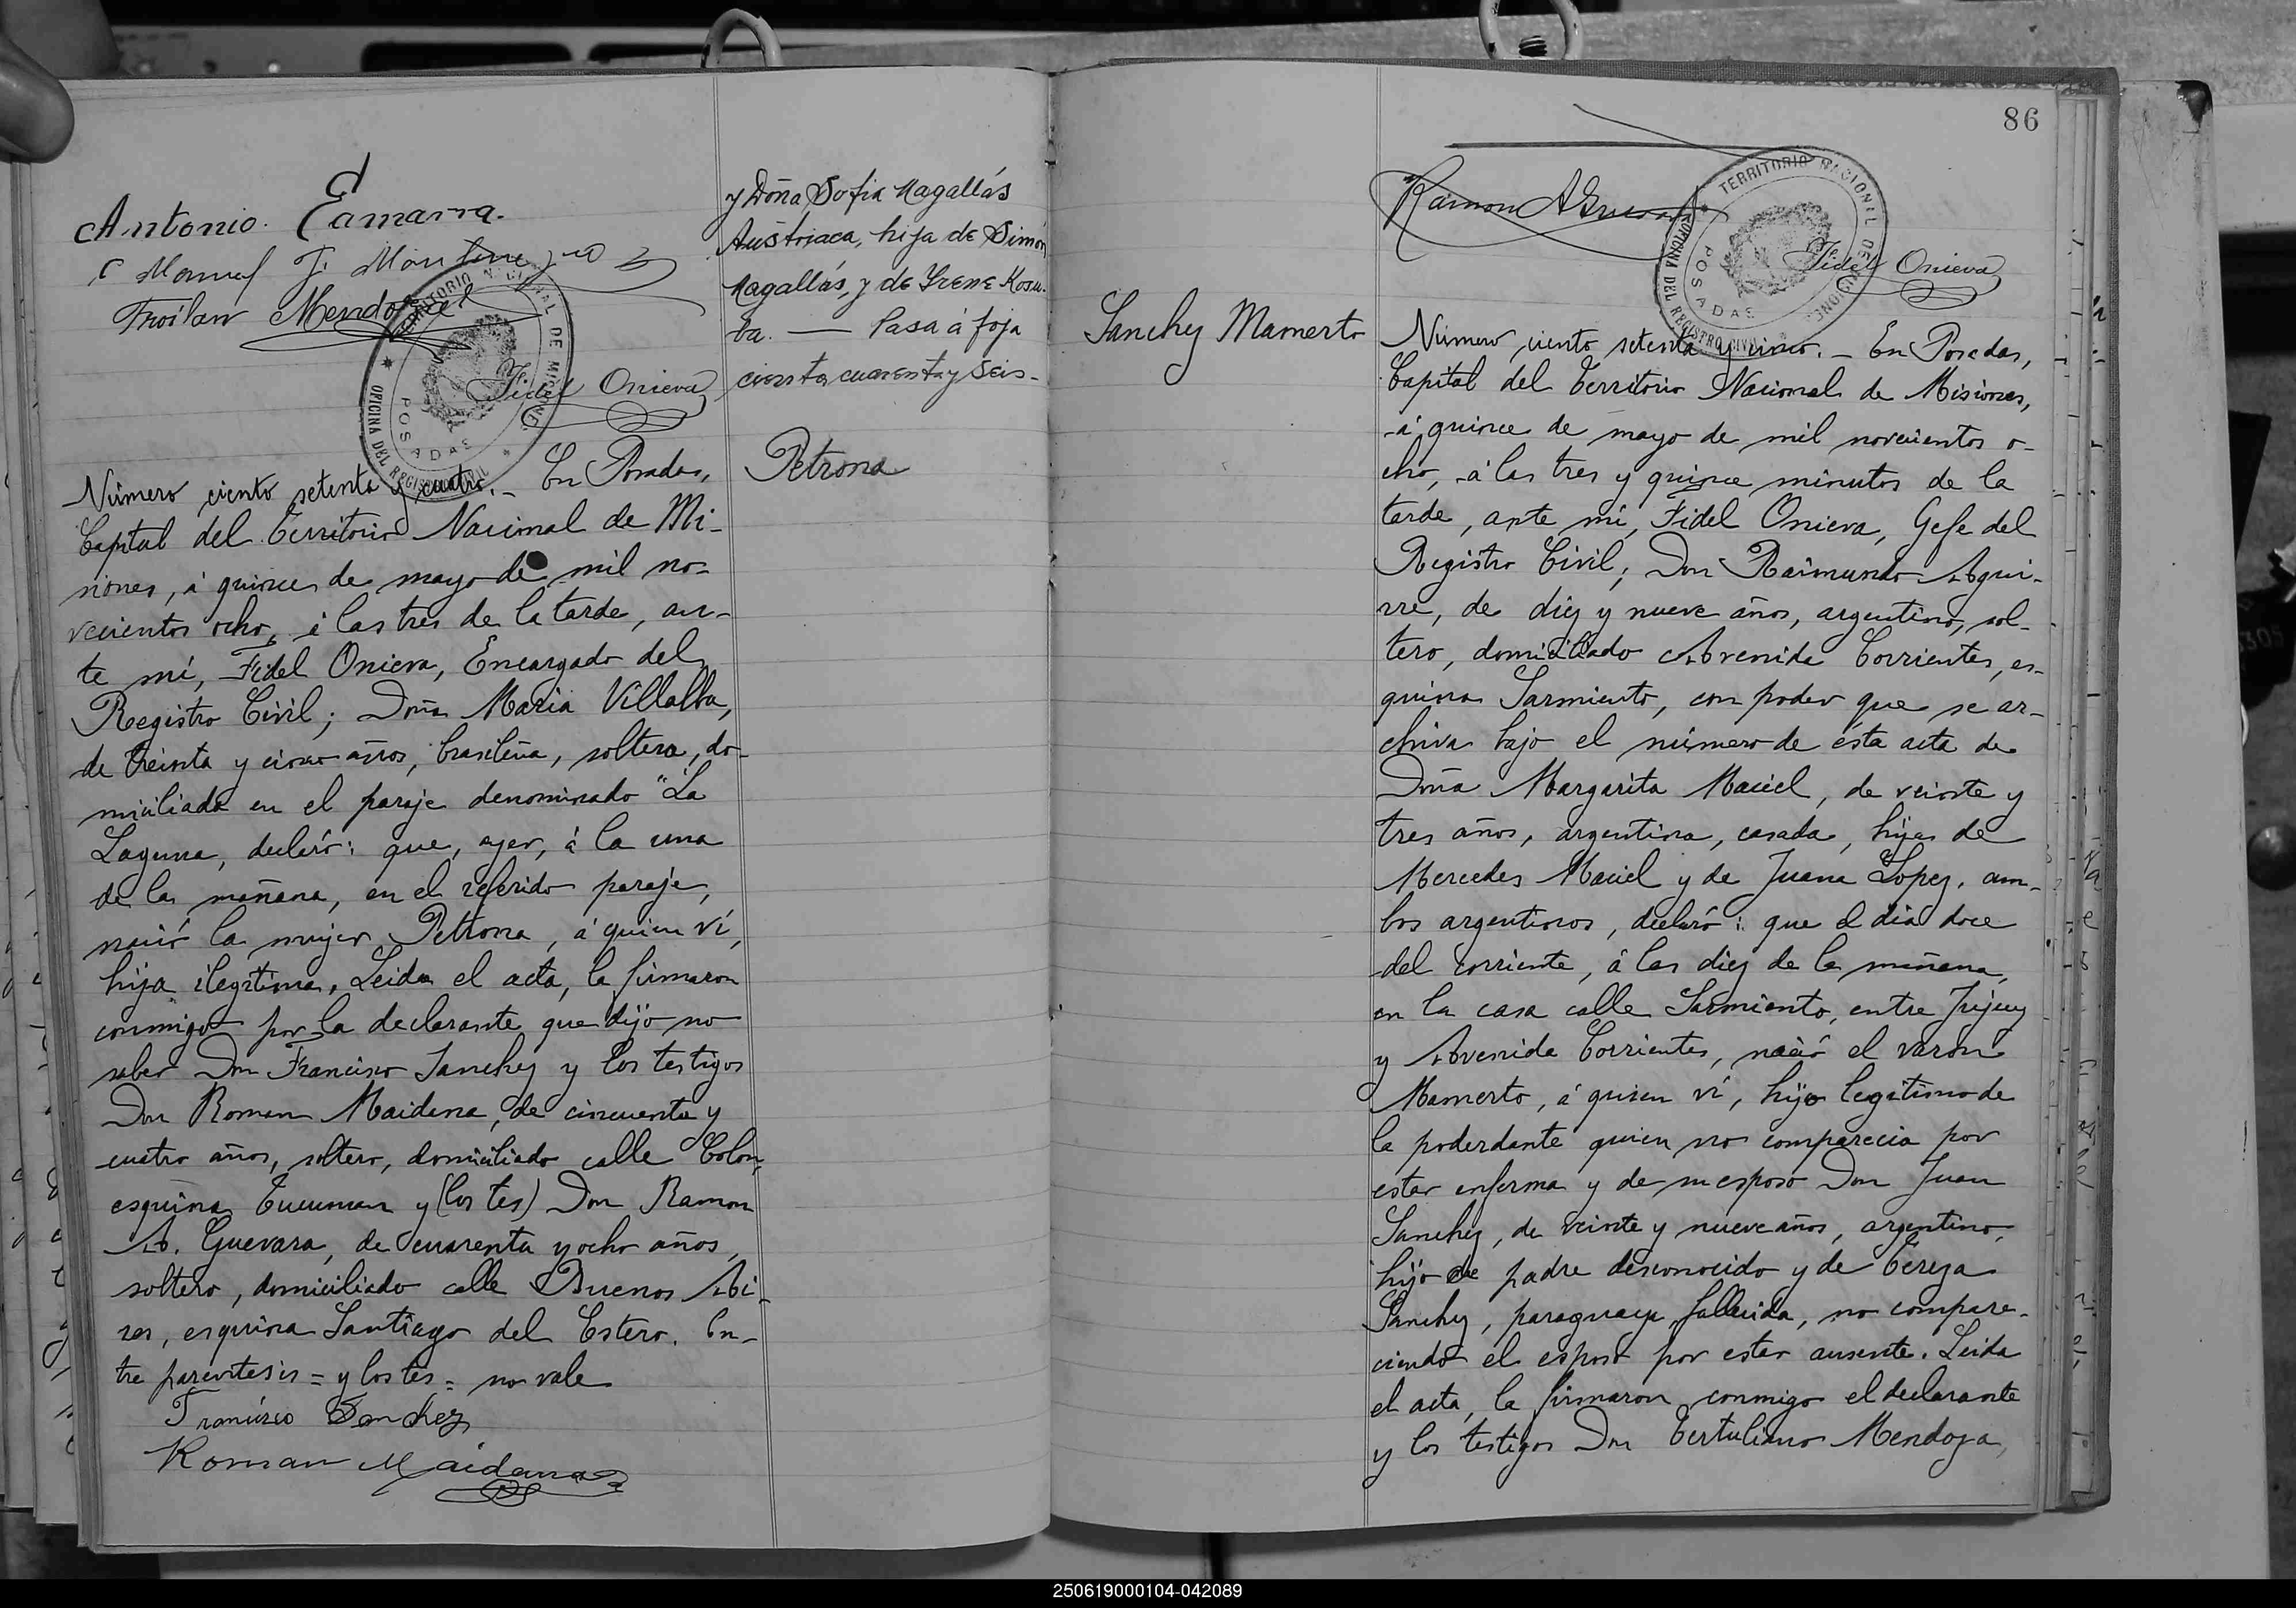 Antonio. Gamarra.
Manuel J. Montenegro
Froilan Mendoza
TERRITORIO NACIONAL DE MISIONES
OFICINA DEL REGISTRO CIVIL
POSADAS
Fidel Onieva
y Doña Sofia Magallás
Austriaca, hija de Simón
Magallás, y de Irene Kosu-
ba. — Pasa á foja
ciento cuarenta y seis-
Petrona
Número ciento setenta y cuatro. - En Posadas,
Capital del Territorio Nacional de Mi-
siones, á quince de mayo de mil no-
vecientos ocho, á las tres de la tarde, an-
te mí, Fidel Onieva, Encargado del
Registro Civil; Doña Maria Villalba,
de treinta y cinco años, brasileña, soltera, do-
miciliada en el paraje denominado "La
Laguna, declaró: que, ayer, á la una
de la mañana, en el referido paraje,
nació la mujer Petrona, á quien ví,
hija ilegítima. Leida el acta, la firmaron
conmigo por la declarante que dijo no
saber Don Francisco Sanchez y los testigos
Don Roman Maidana, de cincuenta y
cuatro años, soltero, domiciliado calle Colon,
esquina Tucuman y (los tes) Don Ramon
A. Guevara, de cuarenta y ocho años,
soltero, domiciliado calle Buenos Ai-
res, esquina Santiago del Estero. En-
tre parentesis = y los tes = no vale
Francisco Sanchez
Roman Maidana
86
Ramon A Guevara
TERRITORIO NACIONAL DE MISIONES
OFICINA DEL REGISTRO CIVIL
POSADAS
Fidel Onieva
Sanchez Mamerto
Número ciento setenta y cinco. - En Posadas,
Capital del Territorio Nacional de Misiones,
á quince de mayo de mil novecientos o-
cho, á las tres y quince minutos de la
tarde, ante mí, Fidel Onieva, Gefe del
Registro Civil; Don Raimundo Agui-
rre, de diez y nueve años, argentino, sol-
tero, domiciliado Avenida Corrientes, es-
quina Sarmiento, con poder que se ar-
chiva bajo el número de ésta acta de
Doña Margarita Maciel, de veinte y
tres años, argentina, casada, hija de
Mercedes Maciel y de Juana Lopez, am-
bos argentinos, declaró: que el dia doce
del corriente, á las diez de la mañana,
en la casa calle Sarmiento, entre Jujuy
y Avenida Corrientes, nació el varon
Mamerto, á quien ví, hijo legítimo de
la poderdante quien no comparecia por
estar enferma y de su esposo Don Juan
Sanchez, de veinte y nueve años, argentino,
hijo de padre desconocido y de Tereza
Sanchez, paraguaya, fallecida, no compare-
ciendo el esposo por estar ausente. Leida
el acta, la firmaron conmigo el declarante
y los testigos Don Tertuliano Mendoza,
250619000104-042089